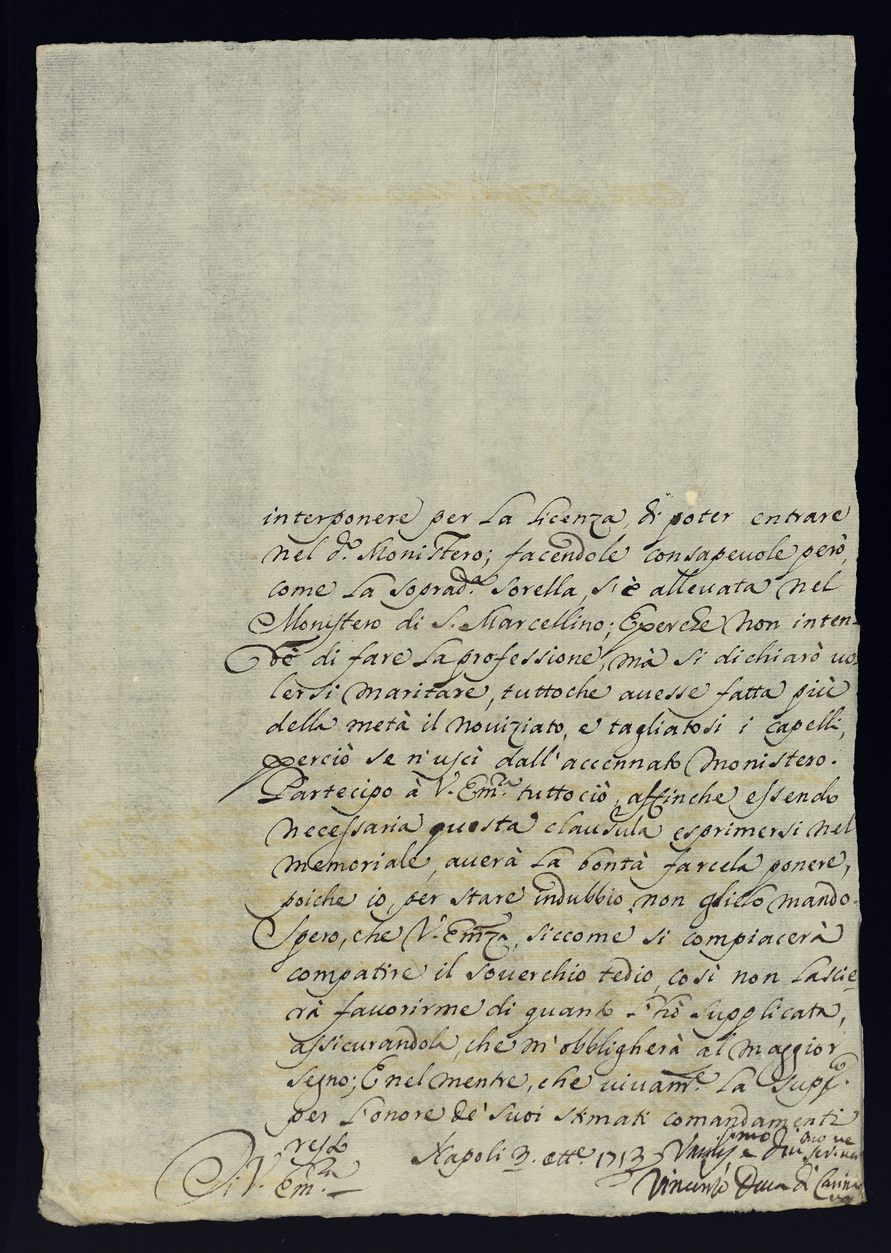 interponere per La Licenza, di poter entrare
nel d.º Monistero; facendole consapeuole però,
come La soprad.ª sorella, s'è alleuata nel
Monistero di S. Marcellino; Eperche non inten-
dè di fare La professione, mà si dichiarò uo
lersi maritare, tuttoche auesse fatta più
della metà il nouiziato, e tagliatosi i capelli,
perciò se n'uscì dall'accennato monistero.
Partecipo à V. Em.ª tuttociò, affinche essendo
necessaria questa clausula esprimersi nel
memoriale, auerà La bontà farcela ponere,
poiche io, per stare indubbio, non glielo mando.
Spero, che V. Emza, siccome si compiacerà
compatire il souerchio tedio, così non Lascie-
rà fauorirme di quanto l'hò supplicata,
assicurandola, che m'obbligherà al maggior
segno; E nel mentre, che uiuam.te La suppco.
per L'onore de' suoi stimati comandamenti
resto
Di V. Em.za Napoli 3. Ott.e 1713
Vincenzo Duca di